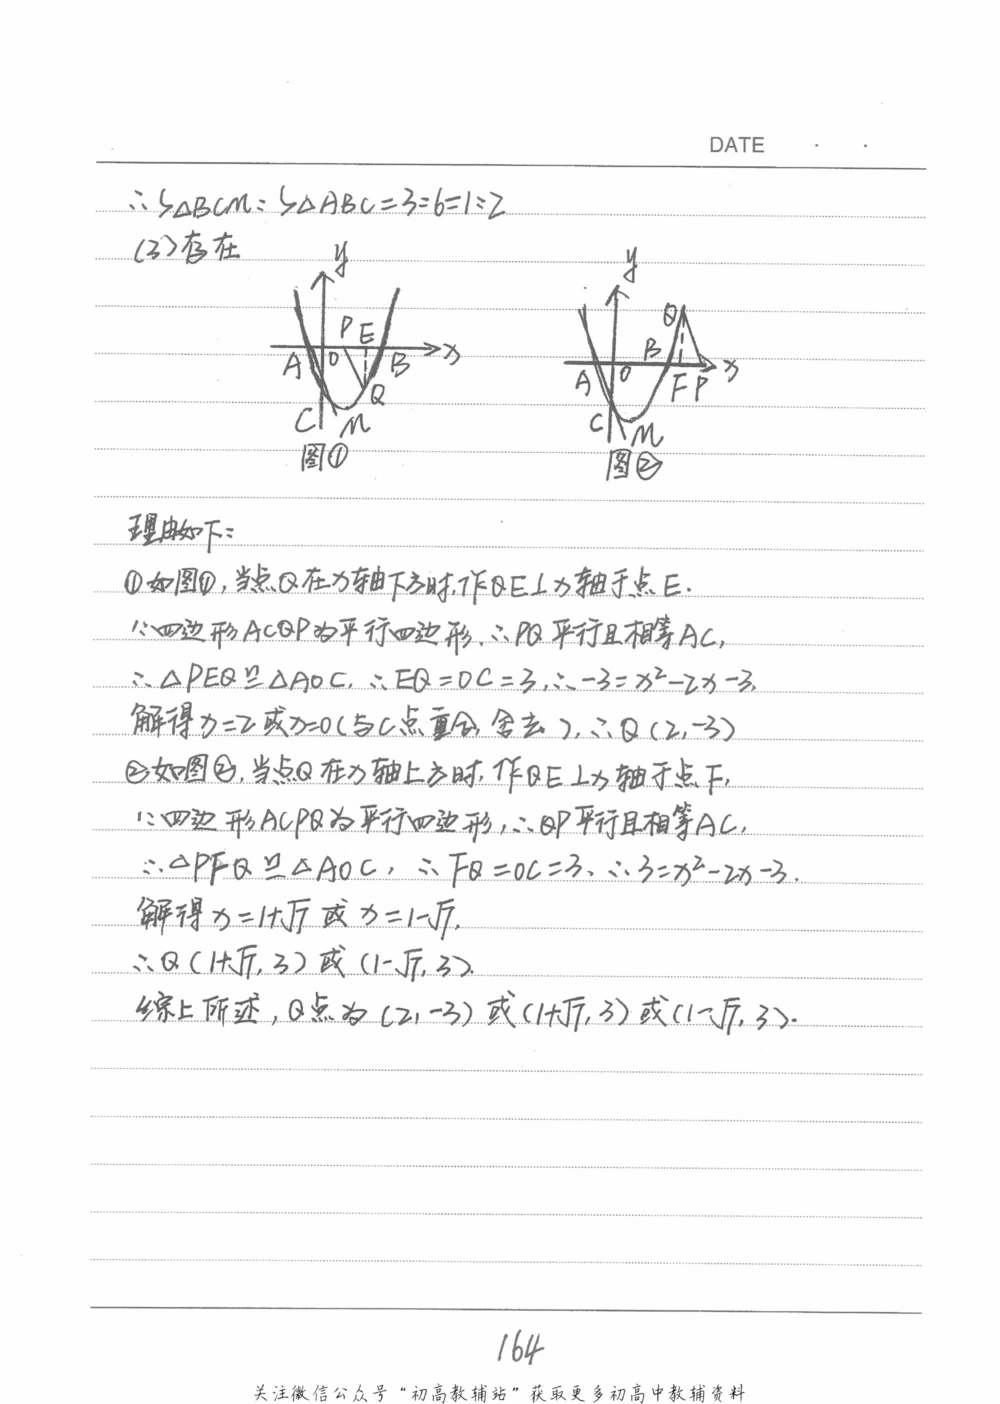 DATE · ·
∴S△BCM:S△ABC=3:6=1:2
(3)存在
y
P E
A O B x
Q
C M
图①
y
Q
B
A O F P x
C M
图②
理由如下:
①如图①,当点Q在x轴下方时,作QE⊥x轴于点E.
∵四边形ACQP为平行四边形,∴PQ平行且相等AC,
∴△PEQ≌△AOC,∴EQ=OC=3,∴-3=x²-2x-3,
解得x=2或x=0(与C点重合,舍去),∴Q(2,-3)
②如图②,当点Q在x轴上方时,作QE⊥x轴于点F,
∵四边形ACPQ为平行四边形,∴QP平行且相等AC,
∴△PFQ≌△AOC,∴FQ=OC=3,∴3=x²-2x-3.
解得x=1+√7或x=1-√7,
∴Q(1+√7,3)或(1-√7,3).
综上所述,Q点为(2,-3)或(1+√7,3)或(1-√7,3).
164
关注微信公众号“初高教辅站”获取更多初高中教辅资料